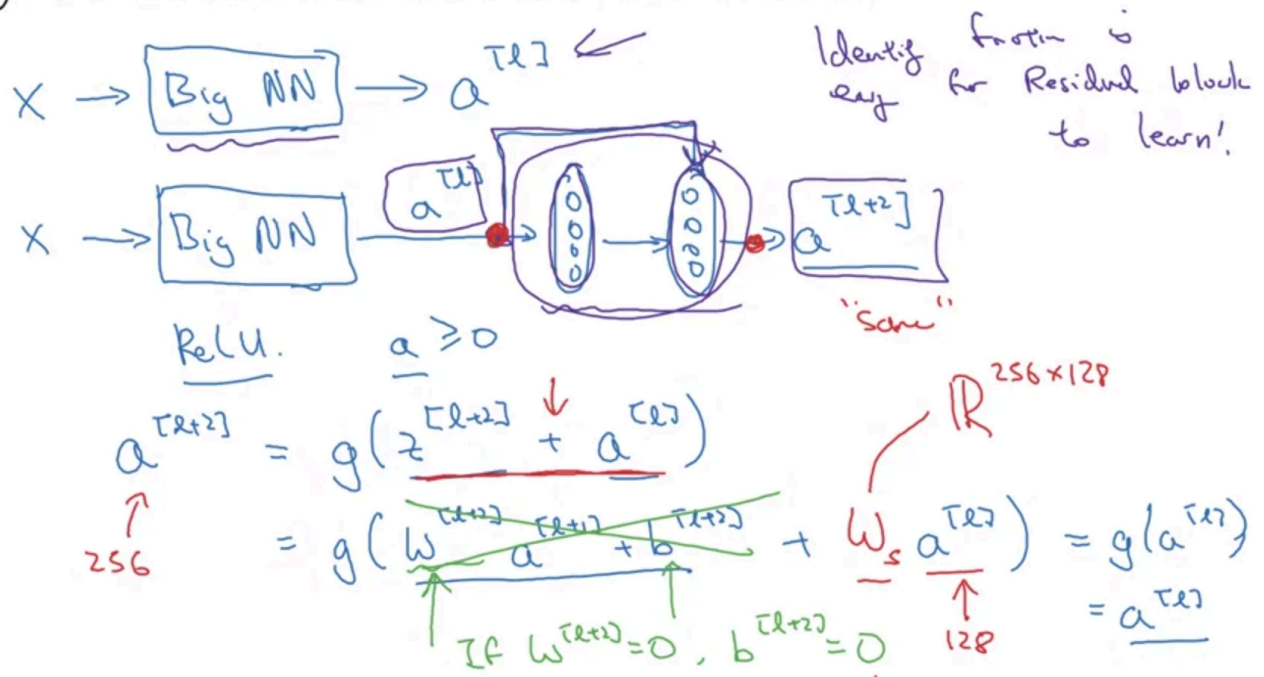 X → Big NN → a^[l] ←
Identity function is
easy for Residual block
to learn!
X → Big NN → a^[l] → → a^[l+2]
"same"
ReLU. a ≥ 0
ℝ^256×128
a^[l+2] = g(z^[l+2] + a^[l])
256
= g(W^[l+2] a^[l+1] + b^[l+2] + W_s a^[l]) = g(a^[l])
= a^[l]
128
If W^[l+2]=0, b^[l+2]=0